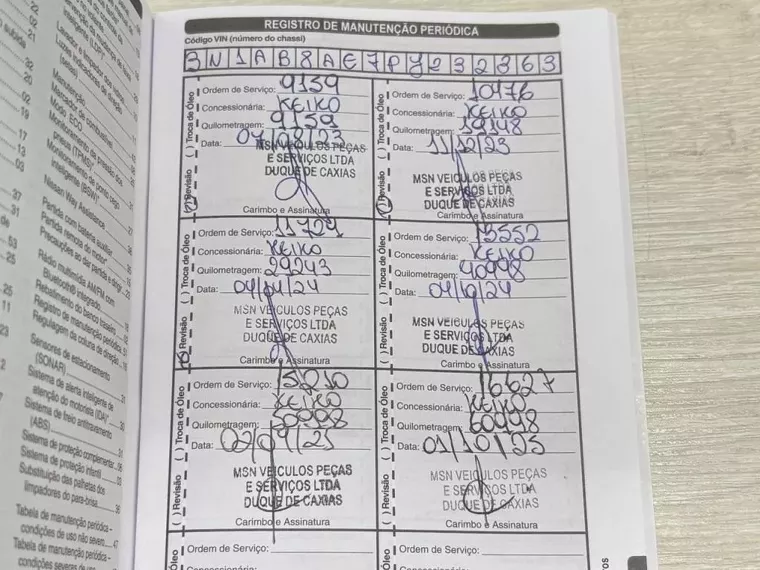 REGISTRO DE MANUTENÇÃO PERIÓDICA
Código VIN (número do chassi)
3N1AB8AE7PY232363
Ordem de Serviço: 9159
Concessionária: KEIKO
Quilometragem: 9159
Data: 07/08/23
MSN VEICULOS PEÇAS
E SERVIÇOS LTDA
DUQUE DE CAXIAS
Carimbo e Assinatura
( ) Revisão ( ) Troca de Óleo
Ordem de Serviço: 10476
Concessionária: KEIKO
Quilometragem: 19148
Data: 11/12/23
MSN VEICULOS PEÇAS
E SERVIÇOS LTDA
DUQUE DE CAXIAS
Carimbo e Assinatura
( ) Revisão ( ) Troca de Óleo
Ordem de Serviço: 11724
Concessionária: KEIKO
Quilometragem: 29243
Data: 04/04/24
MSN VEICULOS PEÇAS
E SERVIÇOS LTDA
DUQUE DE CAXIAS
Carimbo e Assinatura
( ) Revisão ( ) Troca de Óleo
Ordem de Serviço: 13552
Concessionária: KEIKO
Quilometragem: 40998
Data: 04/10/24
MSN VEICULOS PEÇAS
E SERVIÇOS LTDA
DUQUE DE CAXIAS
Carimbo e Assinatura
( ) Revisão ( ) Troca de Óleo
Ordem de Serviço: 15210
Concessionária: KEIKO
Quilometragem: 50998
Data: 02/04/25
MSN VEICULOS PEÇAS
E SERVIÇOS LTDA
DUQUE DE CAXIAS
Carimbo e Assinatura
( ) Revisão ( ) Troca de Óleo
Ordem de Serviço: 16627
Concessionária: KEIKO
Quilometragem: 60998
Data: 01/10/25
MSN VEICULOS PEÇAS
E SERVIÇOS LTDA
DUQUE DE CAXIAS
Carimbo e Assinatura
( ) Revisão ( ) Troca de Óleo
Ordem de Serviço:
Concessionária:
Ordem de Serviço:
Concessionária:
Nissan Way Assistance
Partida com bateria auxiliar
Partida remota do motor
Precauções ao dar partida e dirigir
Rádio multimídia AM/FM com
Bluetooth® integrado
Rebatimento do banco traseiro
Registro de manutenção periódica
Regulagem da coluna de direção
Sensores de estacionamento
(SONAR)
Sistema de alerta inteligente de
atenção do motorista (DA)
Sistema de freio antitravamento
(ABS)
Sistema de proteção complementar
Sistema de proteção infantil
Substituição das palhetas dos
limpadores do para-brisa
Tabela de manutenção periódica -
condições de uso não severo
Tabela de manutenção periódica -